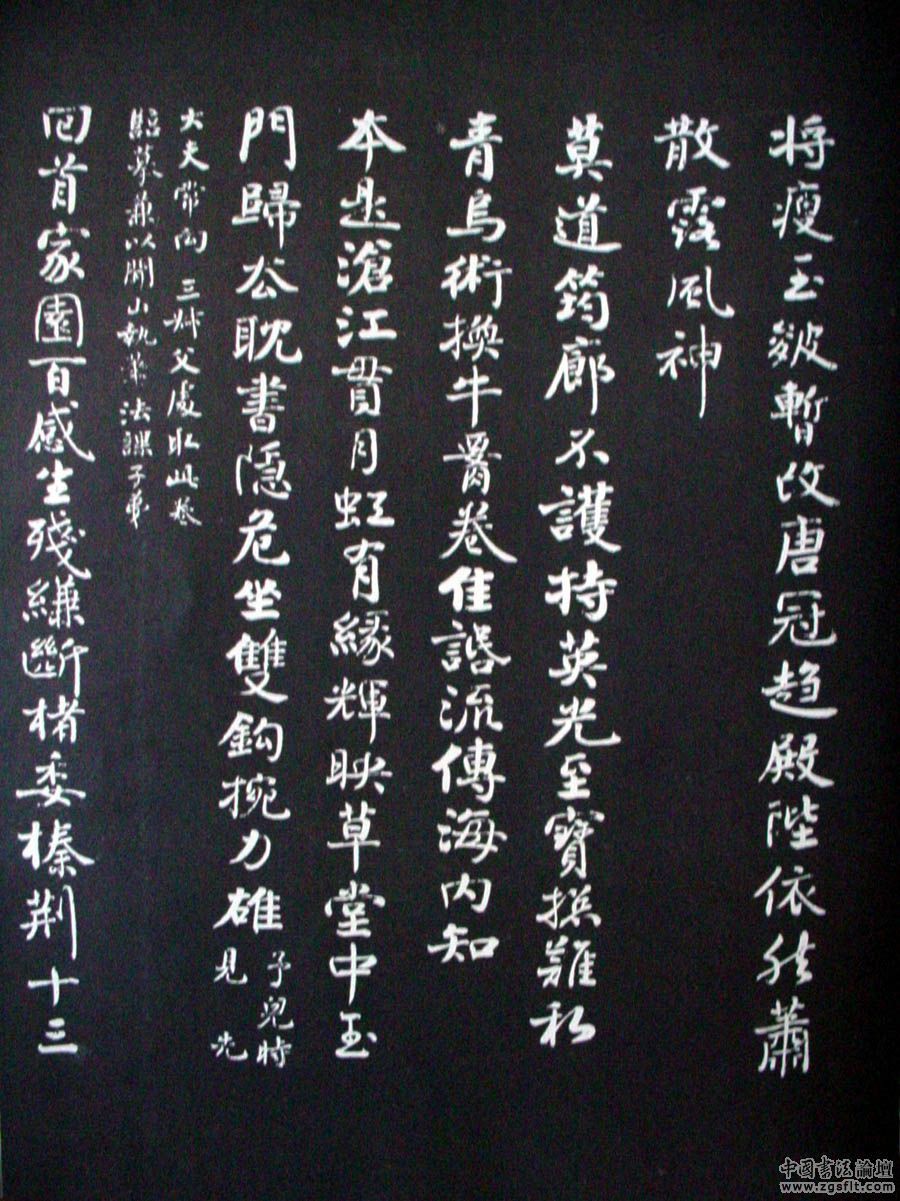 将瘦玉皴暫改唐冠趙殿陛依然蕭
散露風神
莫道筠廊不護持英光至寳難私
青烏術換牛卷佳話流傳海内知
本是滄江貫月虹有緣輝映草堂中玉
門歸公耽書隱危坐雙鈎捥力雄
予兒時
見先
大夫常向三叔父處取此卷
臨摹兼以開山執筆法課子弟
回首家園百感生殘縑斷楮委榛荆十三
中国书法论坛
www.zgsflt.com